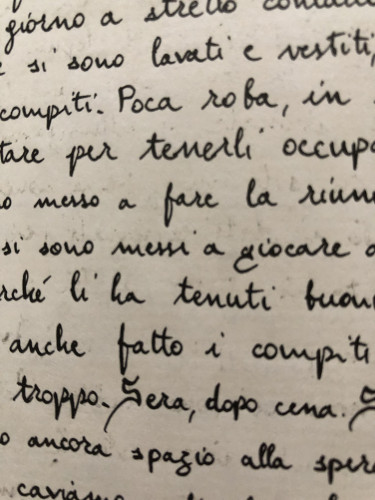 giorno a stretto
si sono lavati e vestiti,
compiti. Poca roba, in
per tenerli
messo a fare la
si sono messi a giocare
li ha tenuti
anche fatto i compiti
troppo. Sera, dopo cena. S
ancora spazio alla